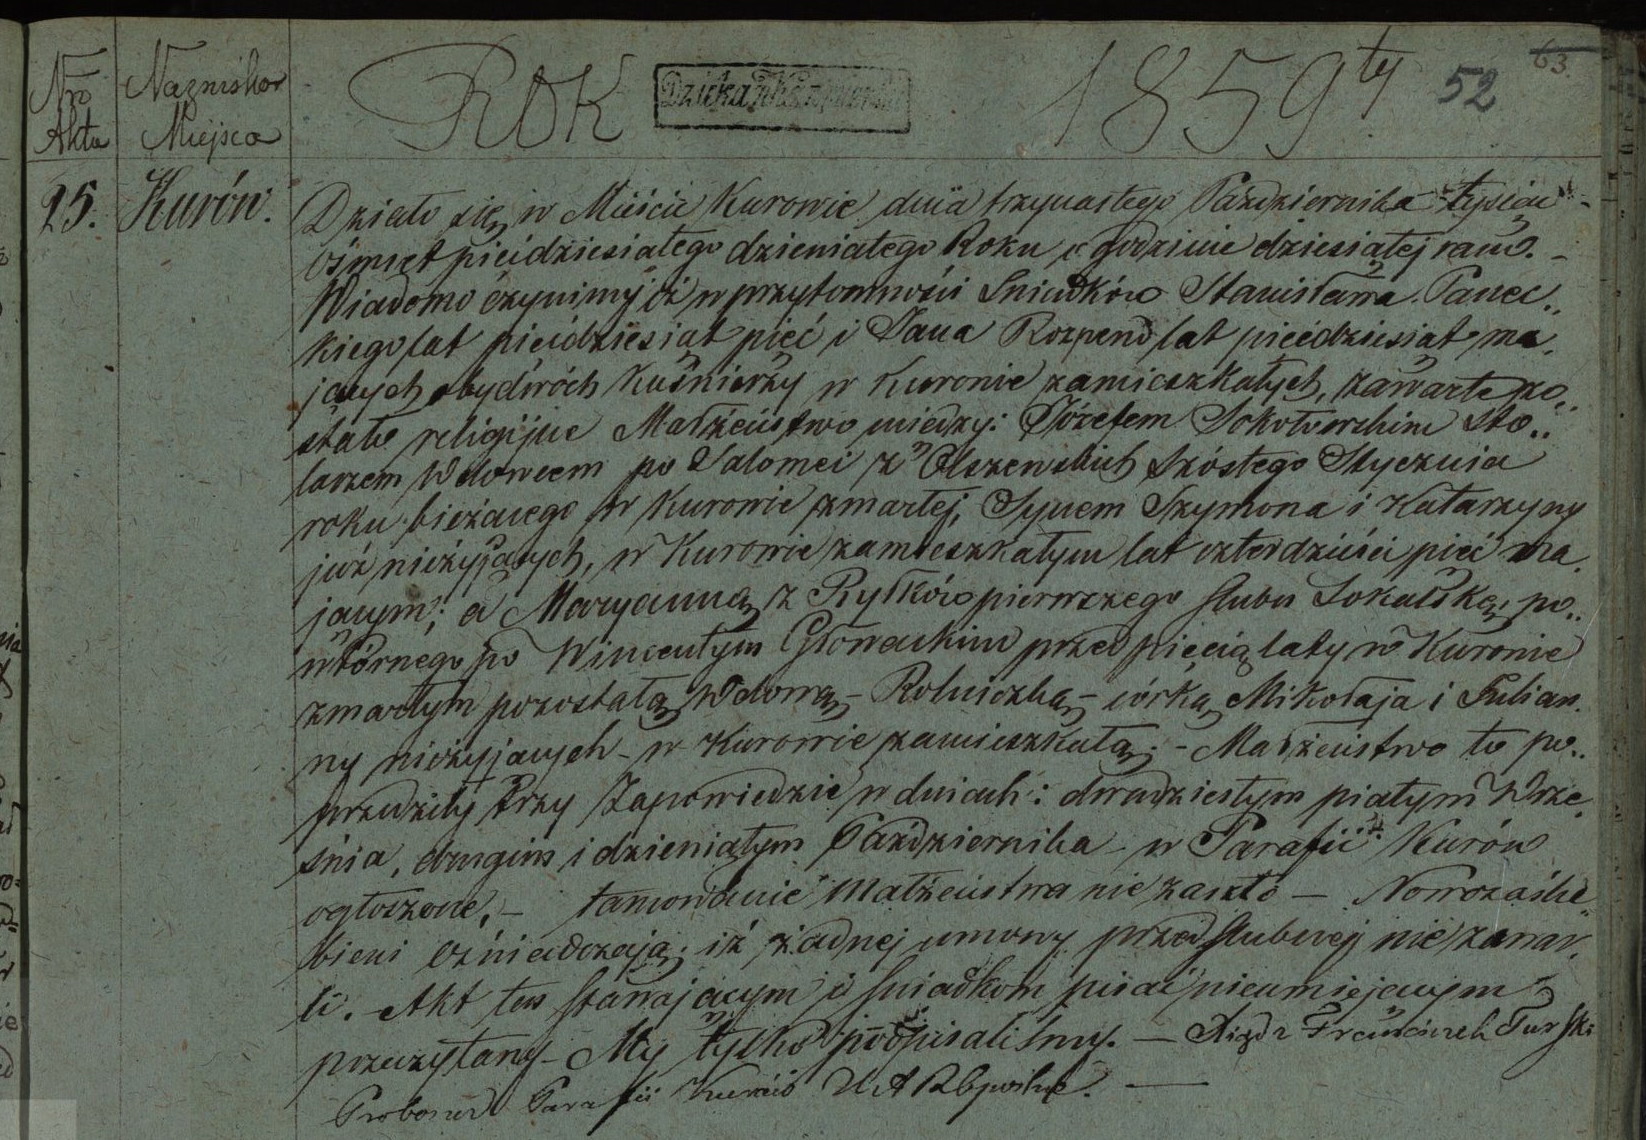 Nro Nazwisko Rok 1859ty 52 63.
Aktu Miejsca
25. Kurów.
Działo się w Mieście Kurowie dnia trzynastego Października tysiąc
ośmset pięćdziesiatego dziewiątego Roku o godzinie dziesiątej rano. –
Wiadomo czynimy iż w przytomności Świadków Stanisława Panec..
kiego lat pięćdziesiąt pięć i Jana Rozpend lat pięćdziesiąt ma..
jących obydwóch kuśnierzy w Kurowie zamieszkałych, zawarte zo..
stało religijne Małżeństwo między: Józefem Sokołowskim Sto..
larzem Wdowcem po Salomei z Olszewskich szóstego Stycznia
roku bieżącego w Kurowie zmarłej, Synem Szymona i Katarzyny
już nieżyjących, w Kurowie zamieszkałym lat czterdzieści pięć ma..
jącym; a Maryanną z Rytków pierwszego ślubu Sokalską, po..
wtórnego po Wincentym Głowackim przed pięcią laty w Kurowie
zmarłym pozostałą Wdową – Rolniczką – córką Mikołaja i Julian..
ny nieżyjących – w Kurowie zamieszkałą. – Małżeństwo to po..
przedziły trzy Zapowiedzie w dniach: dwudziestym piątym Wrze..
śnia, drugim i dziewiątym Października w Parafii Kurów
ogłoszone. – tamowanie Małżeństwa nie zaszło – Nowozaślu..
bieni oświadczają: iż żadnej umowy przedślubnej nie zawar..
li. – Akt ten stawającym i świadkom pisać nieumiejącym
przeczytany – My tylko podpisaliśmy. – Xiądz Franciszek Turski
Proboszcz Parafii Kurów